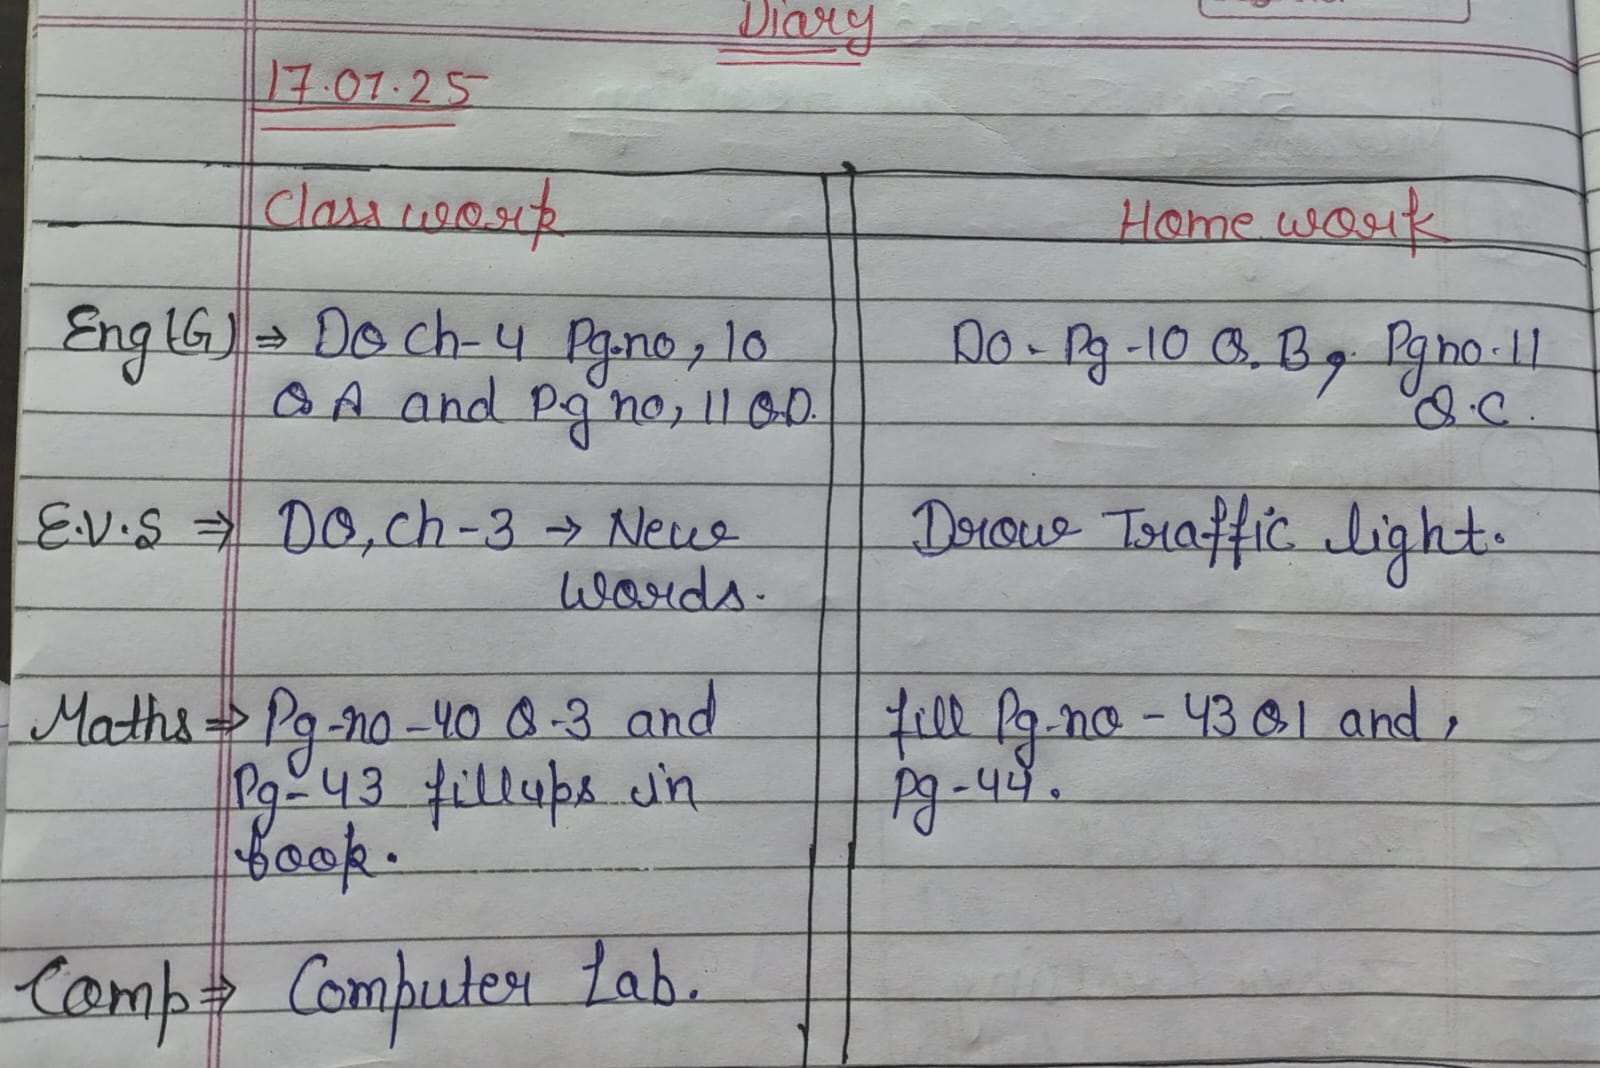 Diary
17.07.25
Class work
Home work
Eng(G) ⇒ Do Ch-4 Pg.no, 10
Q A and P.g no, 11 Q.D.
Do - Pg -10 Q. B, Pg no.11
Q.C.
E.V.S ⇒ Do, Ch-3 → New
words.
Draw Traffic light.
Maths ⇒ Pg-no-40 Q-3 and
Pg-43 fillups in
book.
fill Pg-no-43 Q1 and,
Pg-44.
Comp ⇒ Computer Lab.